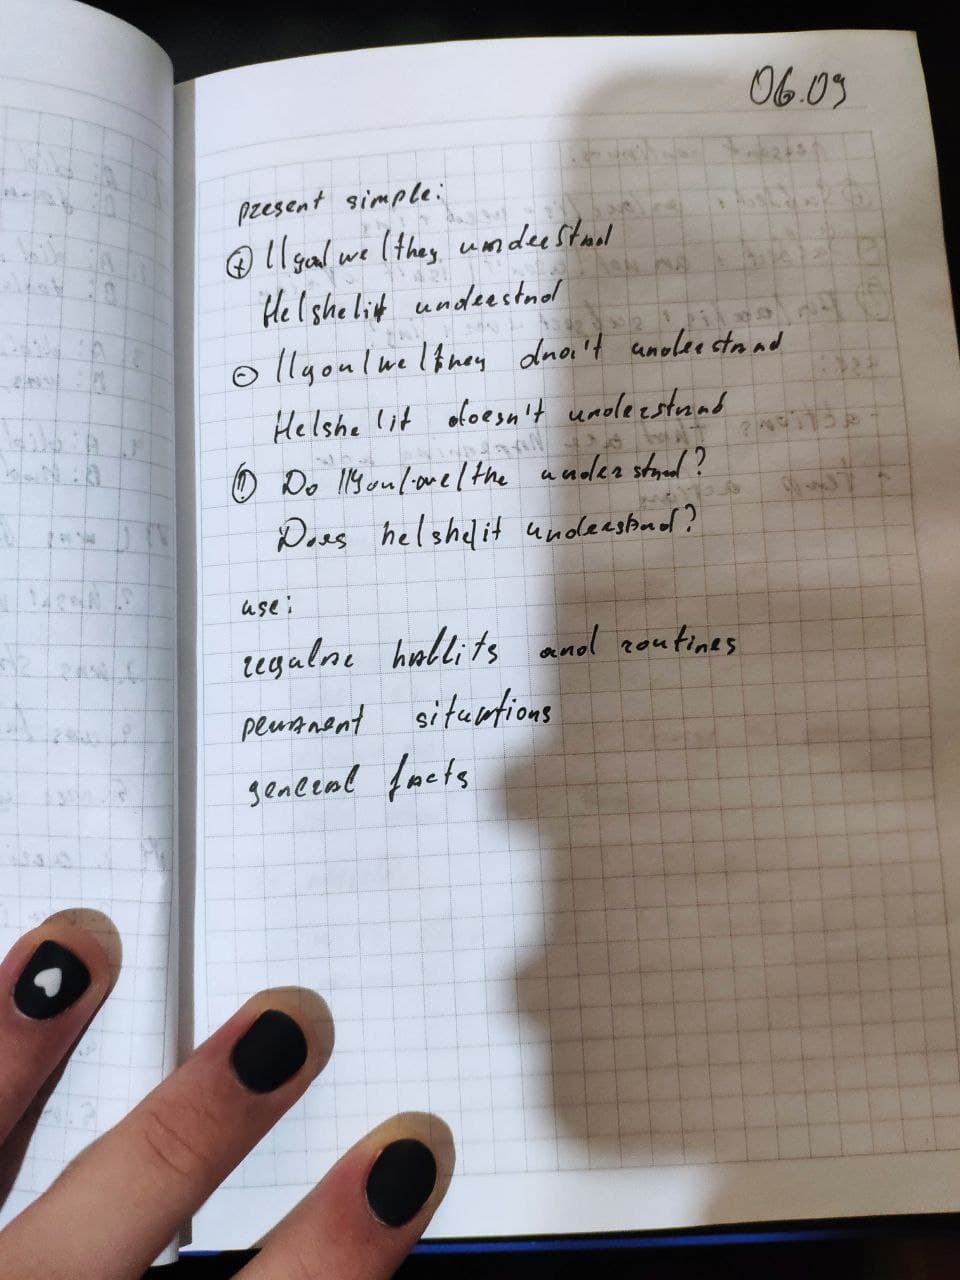 06.09
present simple:
⊕ I/you/we/they understand
He/she/it understnd
⊖ I/you/we/they dno't understand
He/she/it doesn't understand
Do I/you/we/the understand?
Does he/she/it understand?
use:
regular habbits and routines
permanent situations
general facts